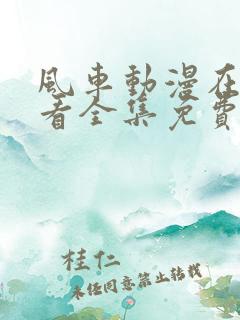 風車動漫在
看全集免費
桂仁
未經同意禁止轉載